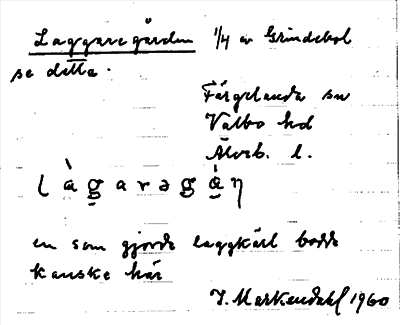 Laggaregården 1/4 av Grindebol
se detta.
Färgelanda sn
Valbo hd
Älvsb. l.
l à g a r ə g à̠ η
en som gjorde laggkärl bodde
kanske här
I. Markendahl 1960